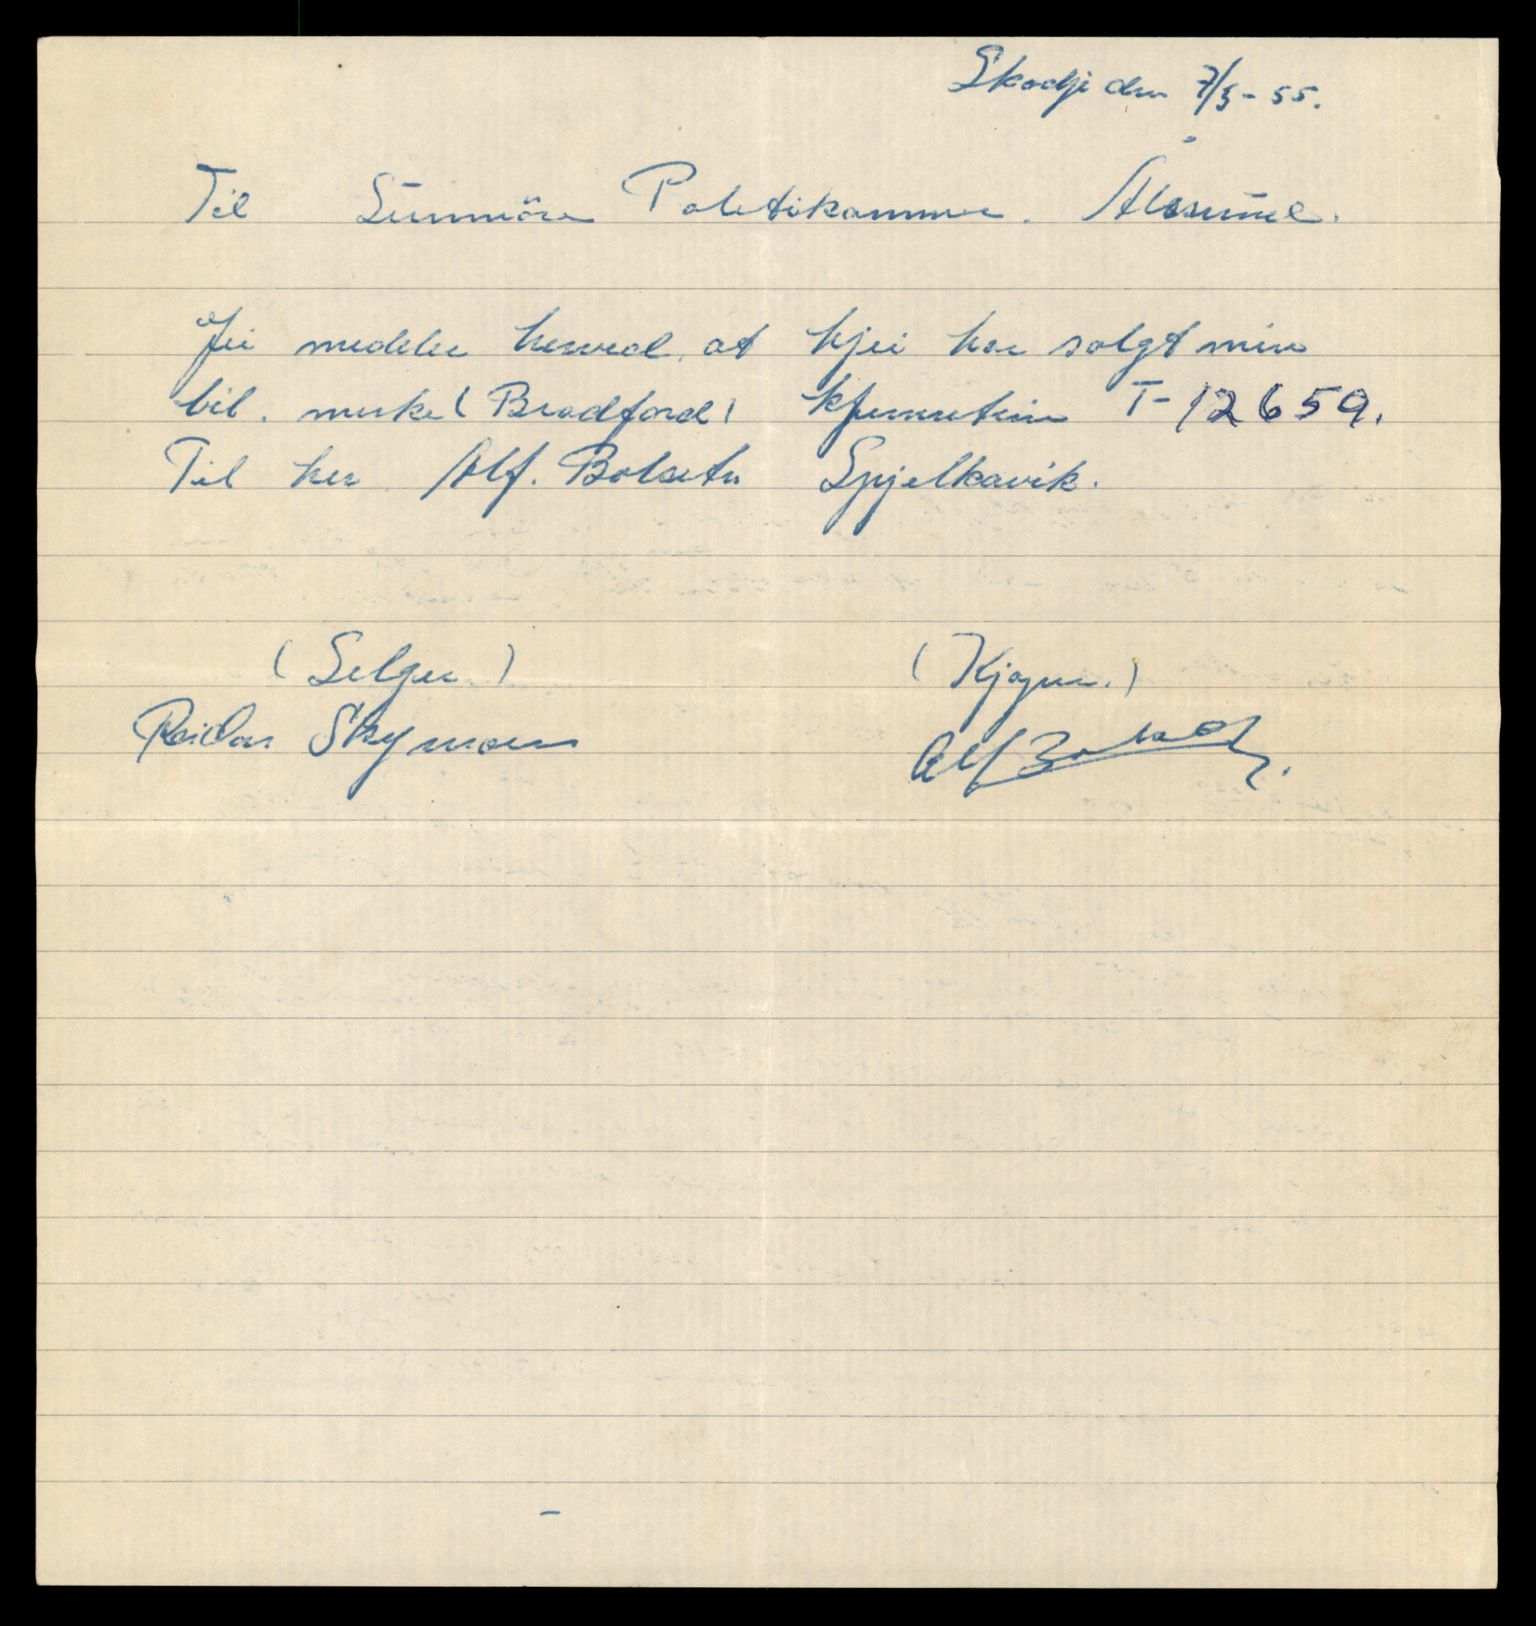 Skodje den 7/5 - 55.
Til Sunnmöre Politikammer. Ålesund.
Jei medeler herved at hjei har solgt min
bil. merke (Bradford) kjennetein T-12659.
Til her Alf. Bolseth Spjelkavik.
(Selger.) (Kjøper.)
Reidar Skymoen Alf Bolseth.